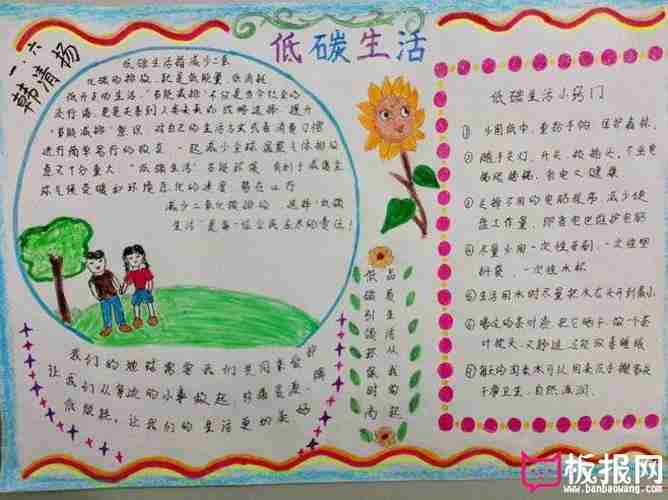 一.六
韩清扬
低碳生活
低碳生活指减少二氧
化碳的排放,就是低能量,低消耗
低开支的生活。"节能减排"不仅是当今社会的
流行语,更是关系到人类未来的战略选择。提升
"节能减排"意识,对自己的生活方式或者消费习惯
进行简单易行的改变,一起减少全球温室气体排放
意义十分重大。"低碳生活"节能环保,有利于减缓全
球气候变暖和环境恶化的速度,势在必行
减少二氧化碳排放,选择"低碳
生活"是每一位公民应尽的责任!
我们的地球需要我们共同来爱护
让我们从身边的小事做起,珍惜资源,降
低能耗,让我们的生活更加美好
低碳引领环保时尚
品质生活从我做起
低碳生活小窍门
① 少用纸巾,重拾手帕,保护森林
② 随手关灯、开关、拔插头,不坐电
梯爬楼梯,省电又健康
③ 关掉不用的电脑程序,减少硬
盘工作量,即省电也维护电脑
④ 尽量少用一次性牙刷、一次性塑
料袋、一次性水杯
⑤ 生活用水时尽量把水龙头开到最小
⑥ 喝过的茶叶渣,把它晒干,做一个茶
叶枕头,又舒适,还能改善睡眠
⑦ 每天的淘米水可以用来洗手擦家具
干净卫生,自然滋润。
板报网
www.banbaowang.com